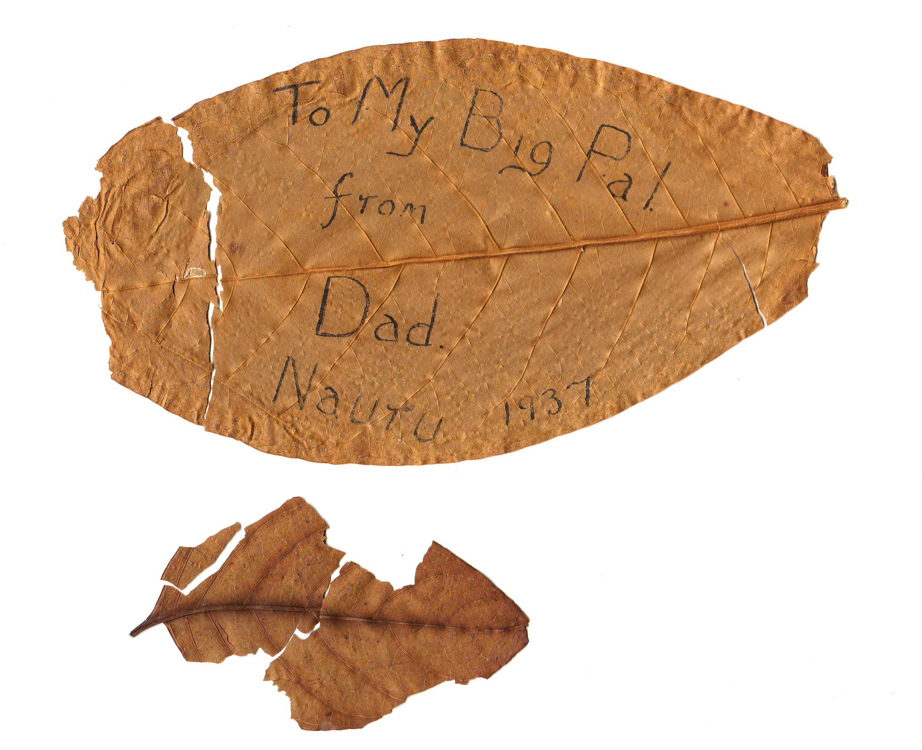 To My Big Pal
from
Dad.
Nauru 1937